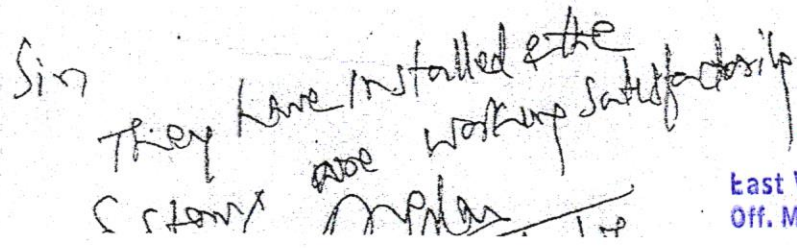 Sir
They have installed & the
are working satisfactorily
East
Off. M